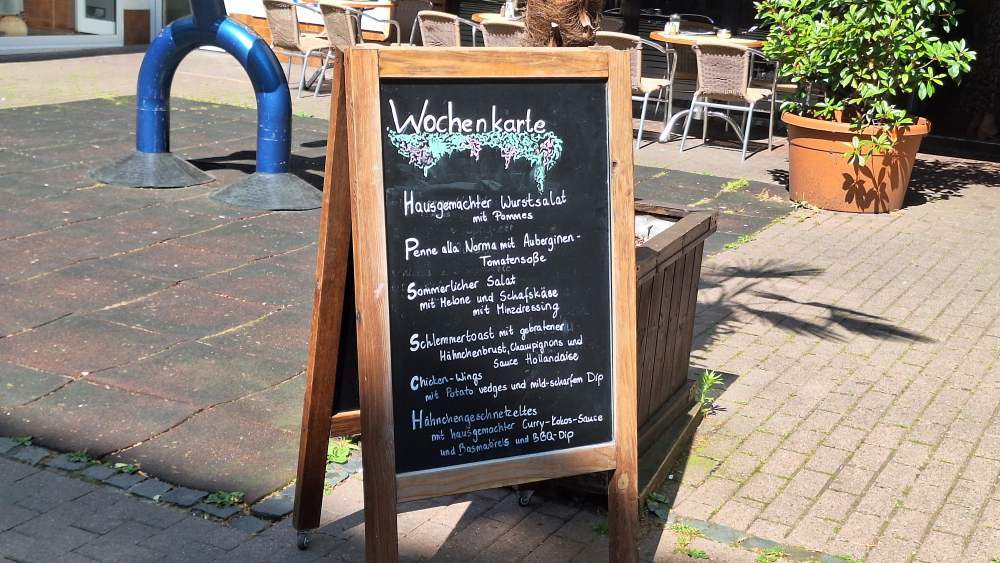 Wochenkarte
Hausgemachter Wurstsalat
mit Pommes
Penne alla Norma mit Auberginen-
Tomatensoße
Sommerlicher Salat
mit Melone und Schafskäse
mit Minzdressing
Schlemmertoast mit gebratener
Hähnchenbrust, Champignons und
Sauce Hollandaise
Chicken-Wings
mit Potato vedges und mild-scharfem Dip
Hähnchengeschnetzeltes
mit hausgemachter Curry-Kokos-Sauce
und Basmatireis und BBQ-Dip